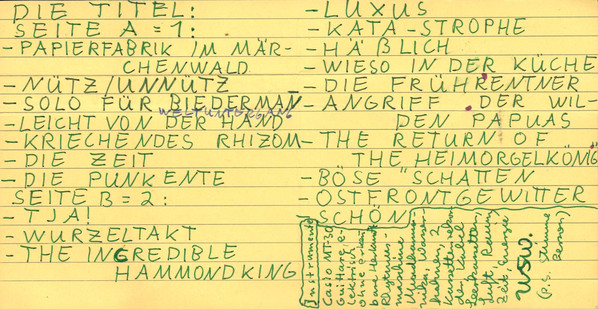 DIE TITEL:
SEITE A = 1:
- PAPIERFABRIK IM MÄR-
CHENWALD
- NÜTZ/UNNÜTZ
- SOLO FÜR BIEDERMAN
WELTUNTERGANG
- LEICHT VON DER HAND
- KRIECHENDES RHIZOM
- DIE ZEIT
- DIE PUNKENTE
SEITE B = 2:
- TJA!
- WURZELTAKT
- THE INCREDIBLE
HAMMONDKING
- LUXUS
- KATA-STROPHE
- HÄßLICH
- WIESO IN DER KÜCHE
- DIE FRÜHRENTNER
- ANGRIFF DER WIL-
DEN PAPUAS
- THE RETURN OF
THE HEIMORGELKÖNIG
- BÖSE SCHATTEN
- OSTFRONTGEWITTER
- SCHÖN
Instrumente
Casio MT-30
Guittare, e-
lektrisch,
ohne
bare
Rhythmus-
maschine
Mundharmo-
2
Kassetten
Luft,
Zeit, Energie
usw.
(P.S. Stimme